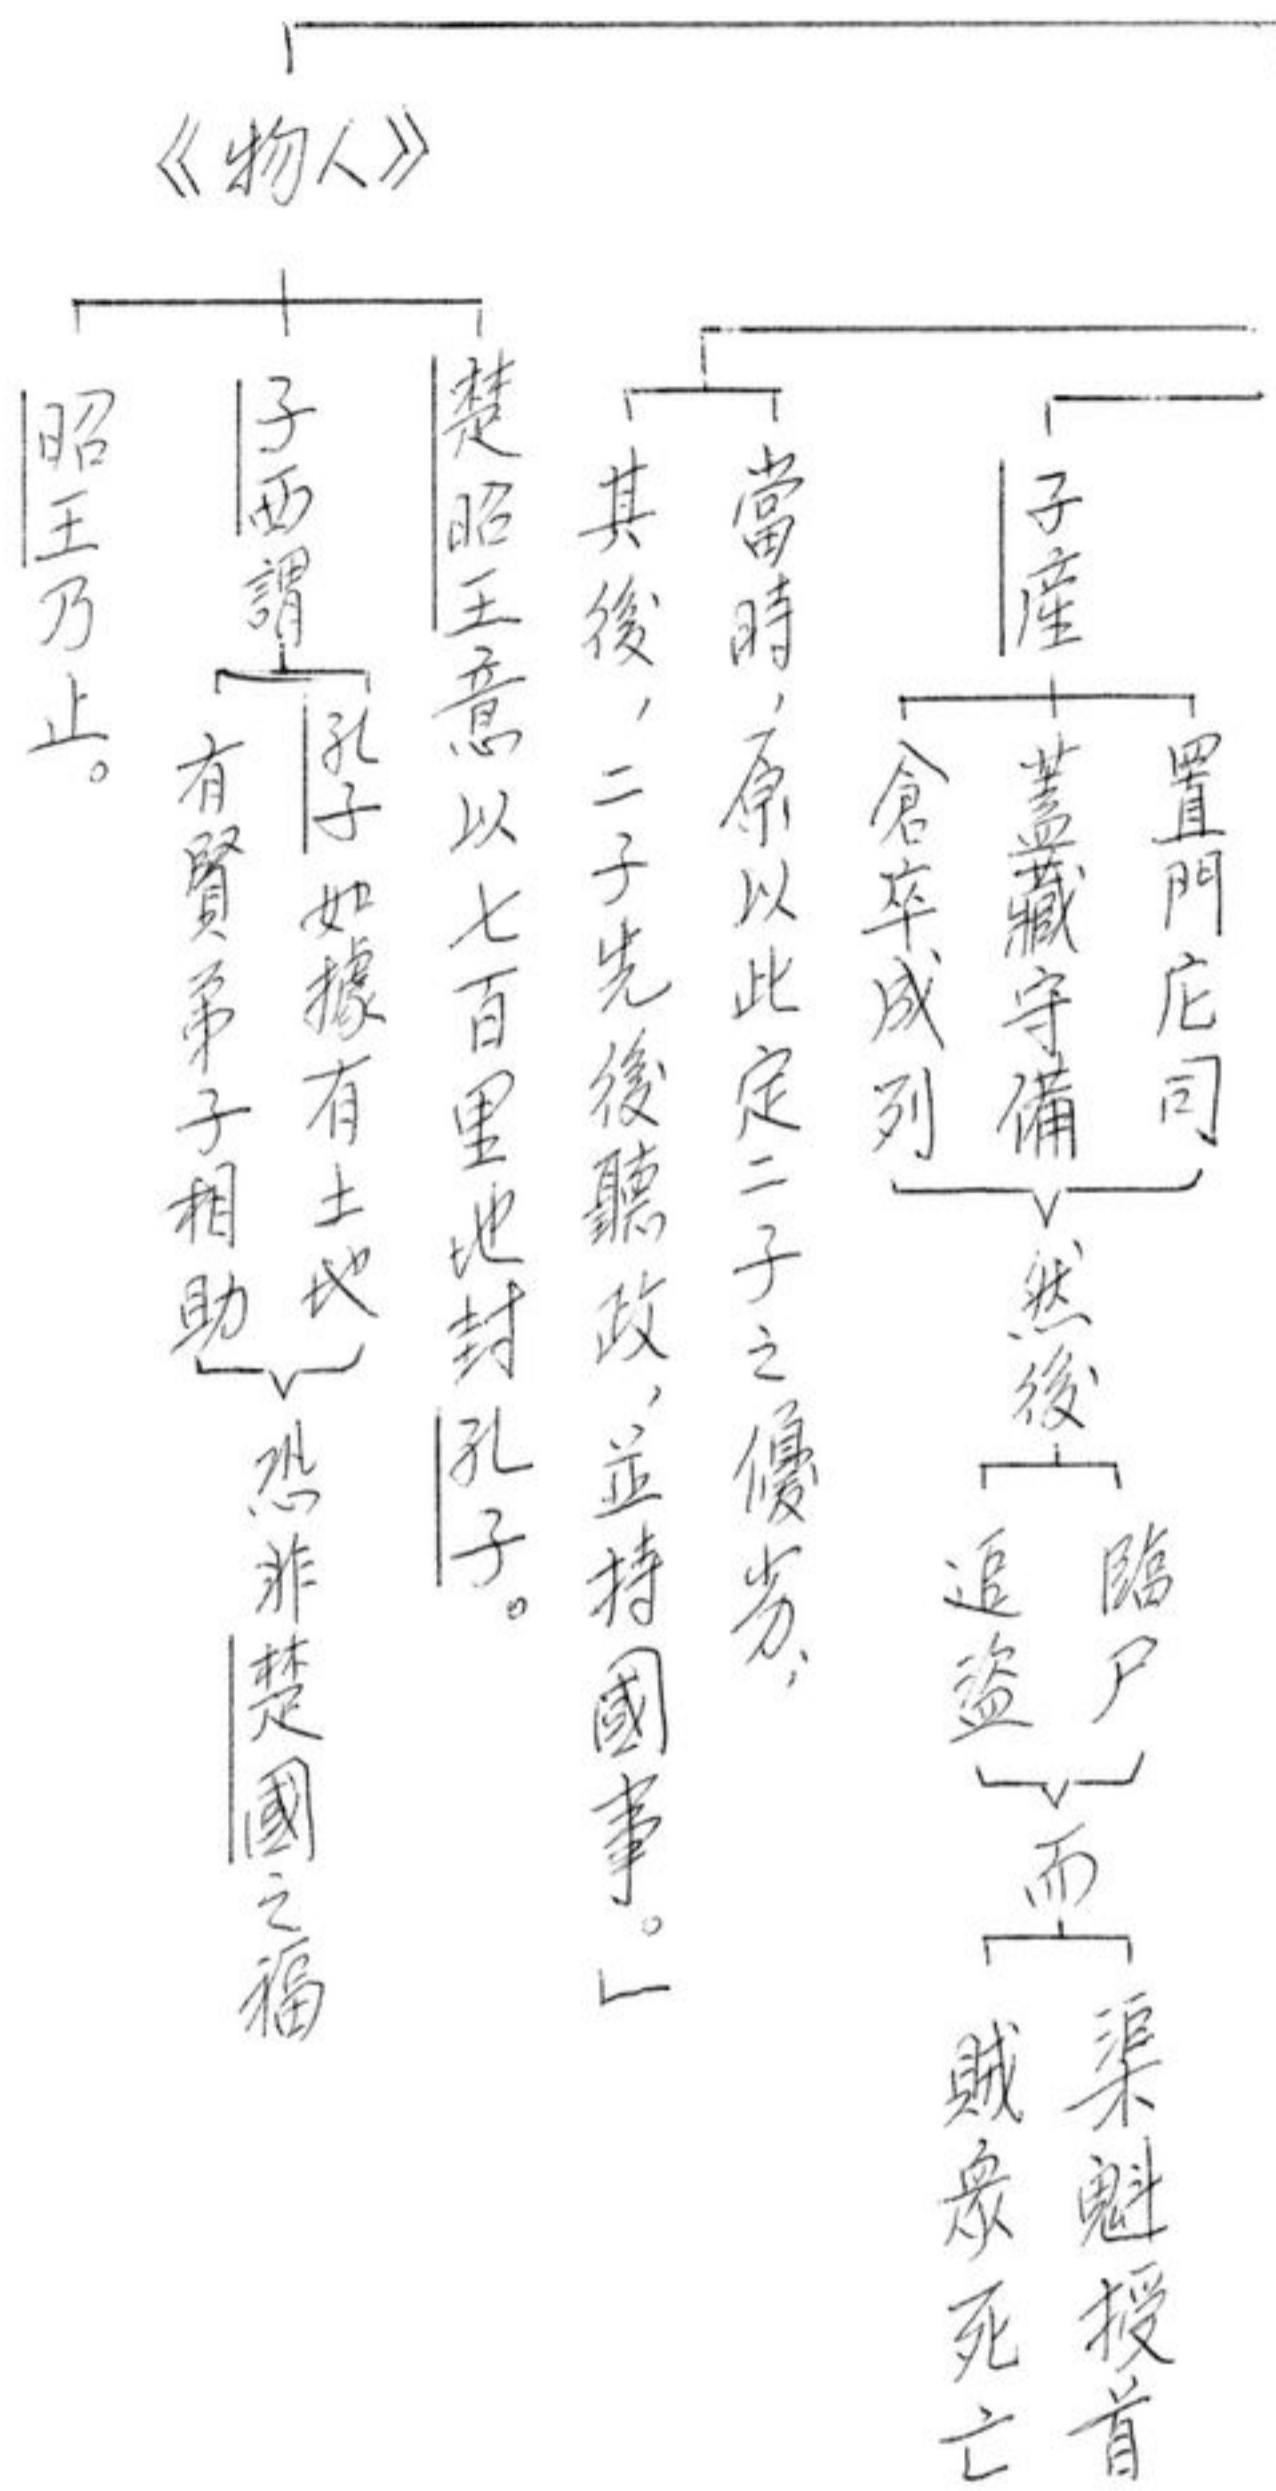 子產
置門庀司
蓋藏守備
倉卒成列
然後
臨尸
追盜
而
渠魁授首
賊衆死亡
當時，原以此定二子之優劣；
其後，二子先後聽政，並持國事。」
《物人》
楚昭王意以七百里地封孔子。
子西謂
孔子如據有土地
有賢弟子相助
恐非楚國之福
昭王乃止。